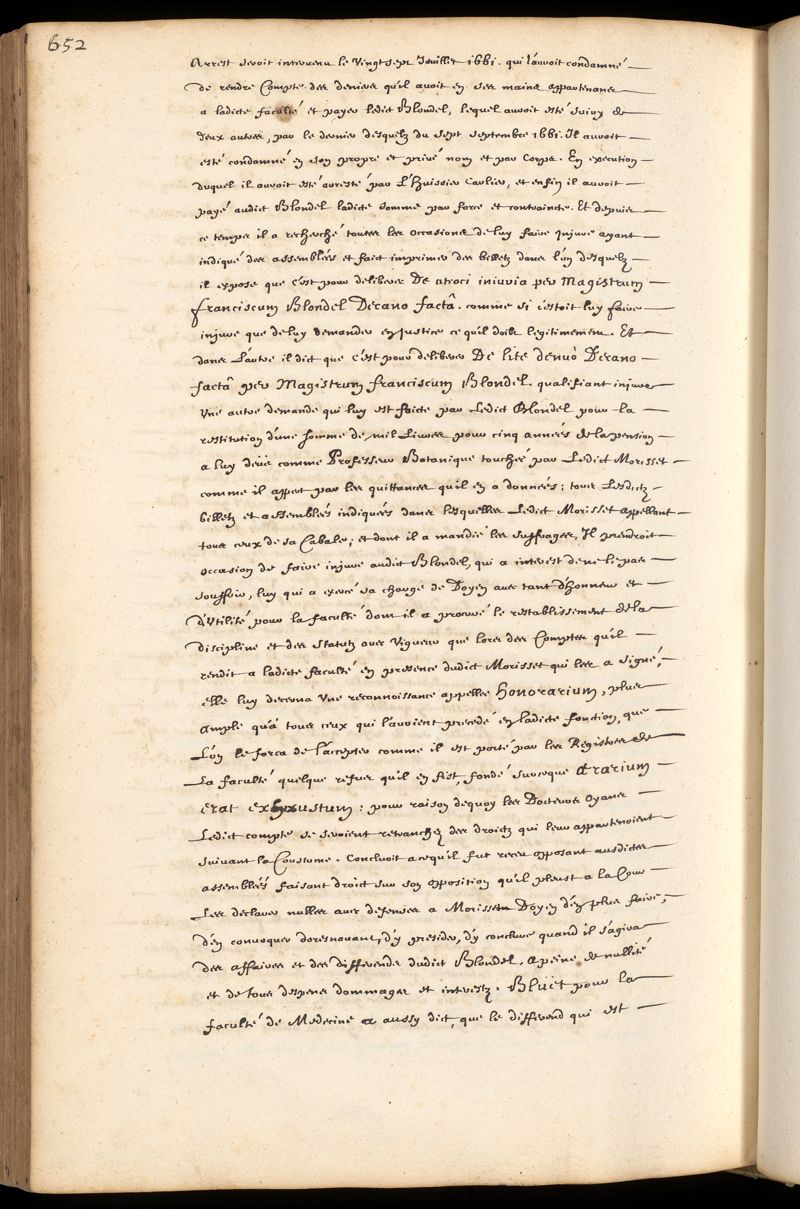 652
Arrest seroit intervenu le Vingt sept Juillet 1661. qui l'auroit condamné
de rendre Compte des deniers qu'il avoit en ses mains appartenans
a ladicte faculté et payer ledict Blondel, lequel auroit esté suivy de
deux autres, par le dernier desquelz du sept Septembre 1661. Il auroit
esté condamné en son propre et privé nom et par Corps. En execution
duquel il auroit esté arresté par L'Huissier Carlier, et enfin il auroit
payé audict Blondel ladicte somme par force et contrainte. Et depuis
ce temps il a recherché toutes les occasions de luy faire Injure ayant
indiqué des assemblées et faict imprimer des billetz dans l'un desquelz
il expose que c'est pour deliberer De atroci iniuria per Magistrum
franciscum Blondel Decano factâ. comme si c'estoit luy faire
injure que de luy demander en Justice ce qu'il doibt legitimement. Et
dans L'autre il dict que c'est pour deliberer De lite denuò Decano
factâ per Magistrum franciscum Blondel. qualifiant injure
Une autre demande qui luy est faicte par Ledict Blondel pour la
restitution d'une somme de mil Livres pour cinq années de la pension
a luy deüe comme Professeur Botanique touchée par Ledict Morisset
comme il appert par les quittances qu'il en a données; tous Lesdictz
billetz et assemblées indiquées dans lesquelles Ledict Morisset appellant
tous ceux de sa Cabale, et dont il a mandié les suffrages, Il prendroit
occasion de faire injure audict Blondel, qui a interest de ne le pas
souffrir, luy qui a exercé sa charge de Doyen avec tant d'honneur et
d'Utilité pour la faculté dont il a procuré le restablissement de la
discipline et des Statutz avec Vigueur que lors des Comptes qu'il
rendit a ladicte faculté en presence dudict Morisset qui les a signé,
elle luy decerna Une reconnoissance appellée Honorarium, plus
ample qu'à tous ceux qui l'avoient precedé en ladicte fonction, que
L'on le força de l'accepter comme il est porté par les Registres de
La faculté quelque refus qu'il en fist, fondé sur ce que Ærarium
erat exhaustum: pour raison dequoy les Docteurs Oyans
Ledict compte se seroient retranchez des droictz qui leur appartenoient
suivant la Coustume. Concluoit a ce qu'il fut receu opposant ausdictes
assemblées faisant droict sur son opposition qu'il pleust a la Cour
Les declarer nulles avec defenses a Morisset Doyen d'en plus faire,
d'en convoquer doresnavant, d'y presider, d'y conclure quand il s'agira
des affaires et des differends dudict Blondel, a peine de nullité
et de tous despens dommages et interestz. Bluet pour la
faculté de Medecine a aussy dict, que le differend qui est